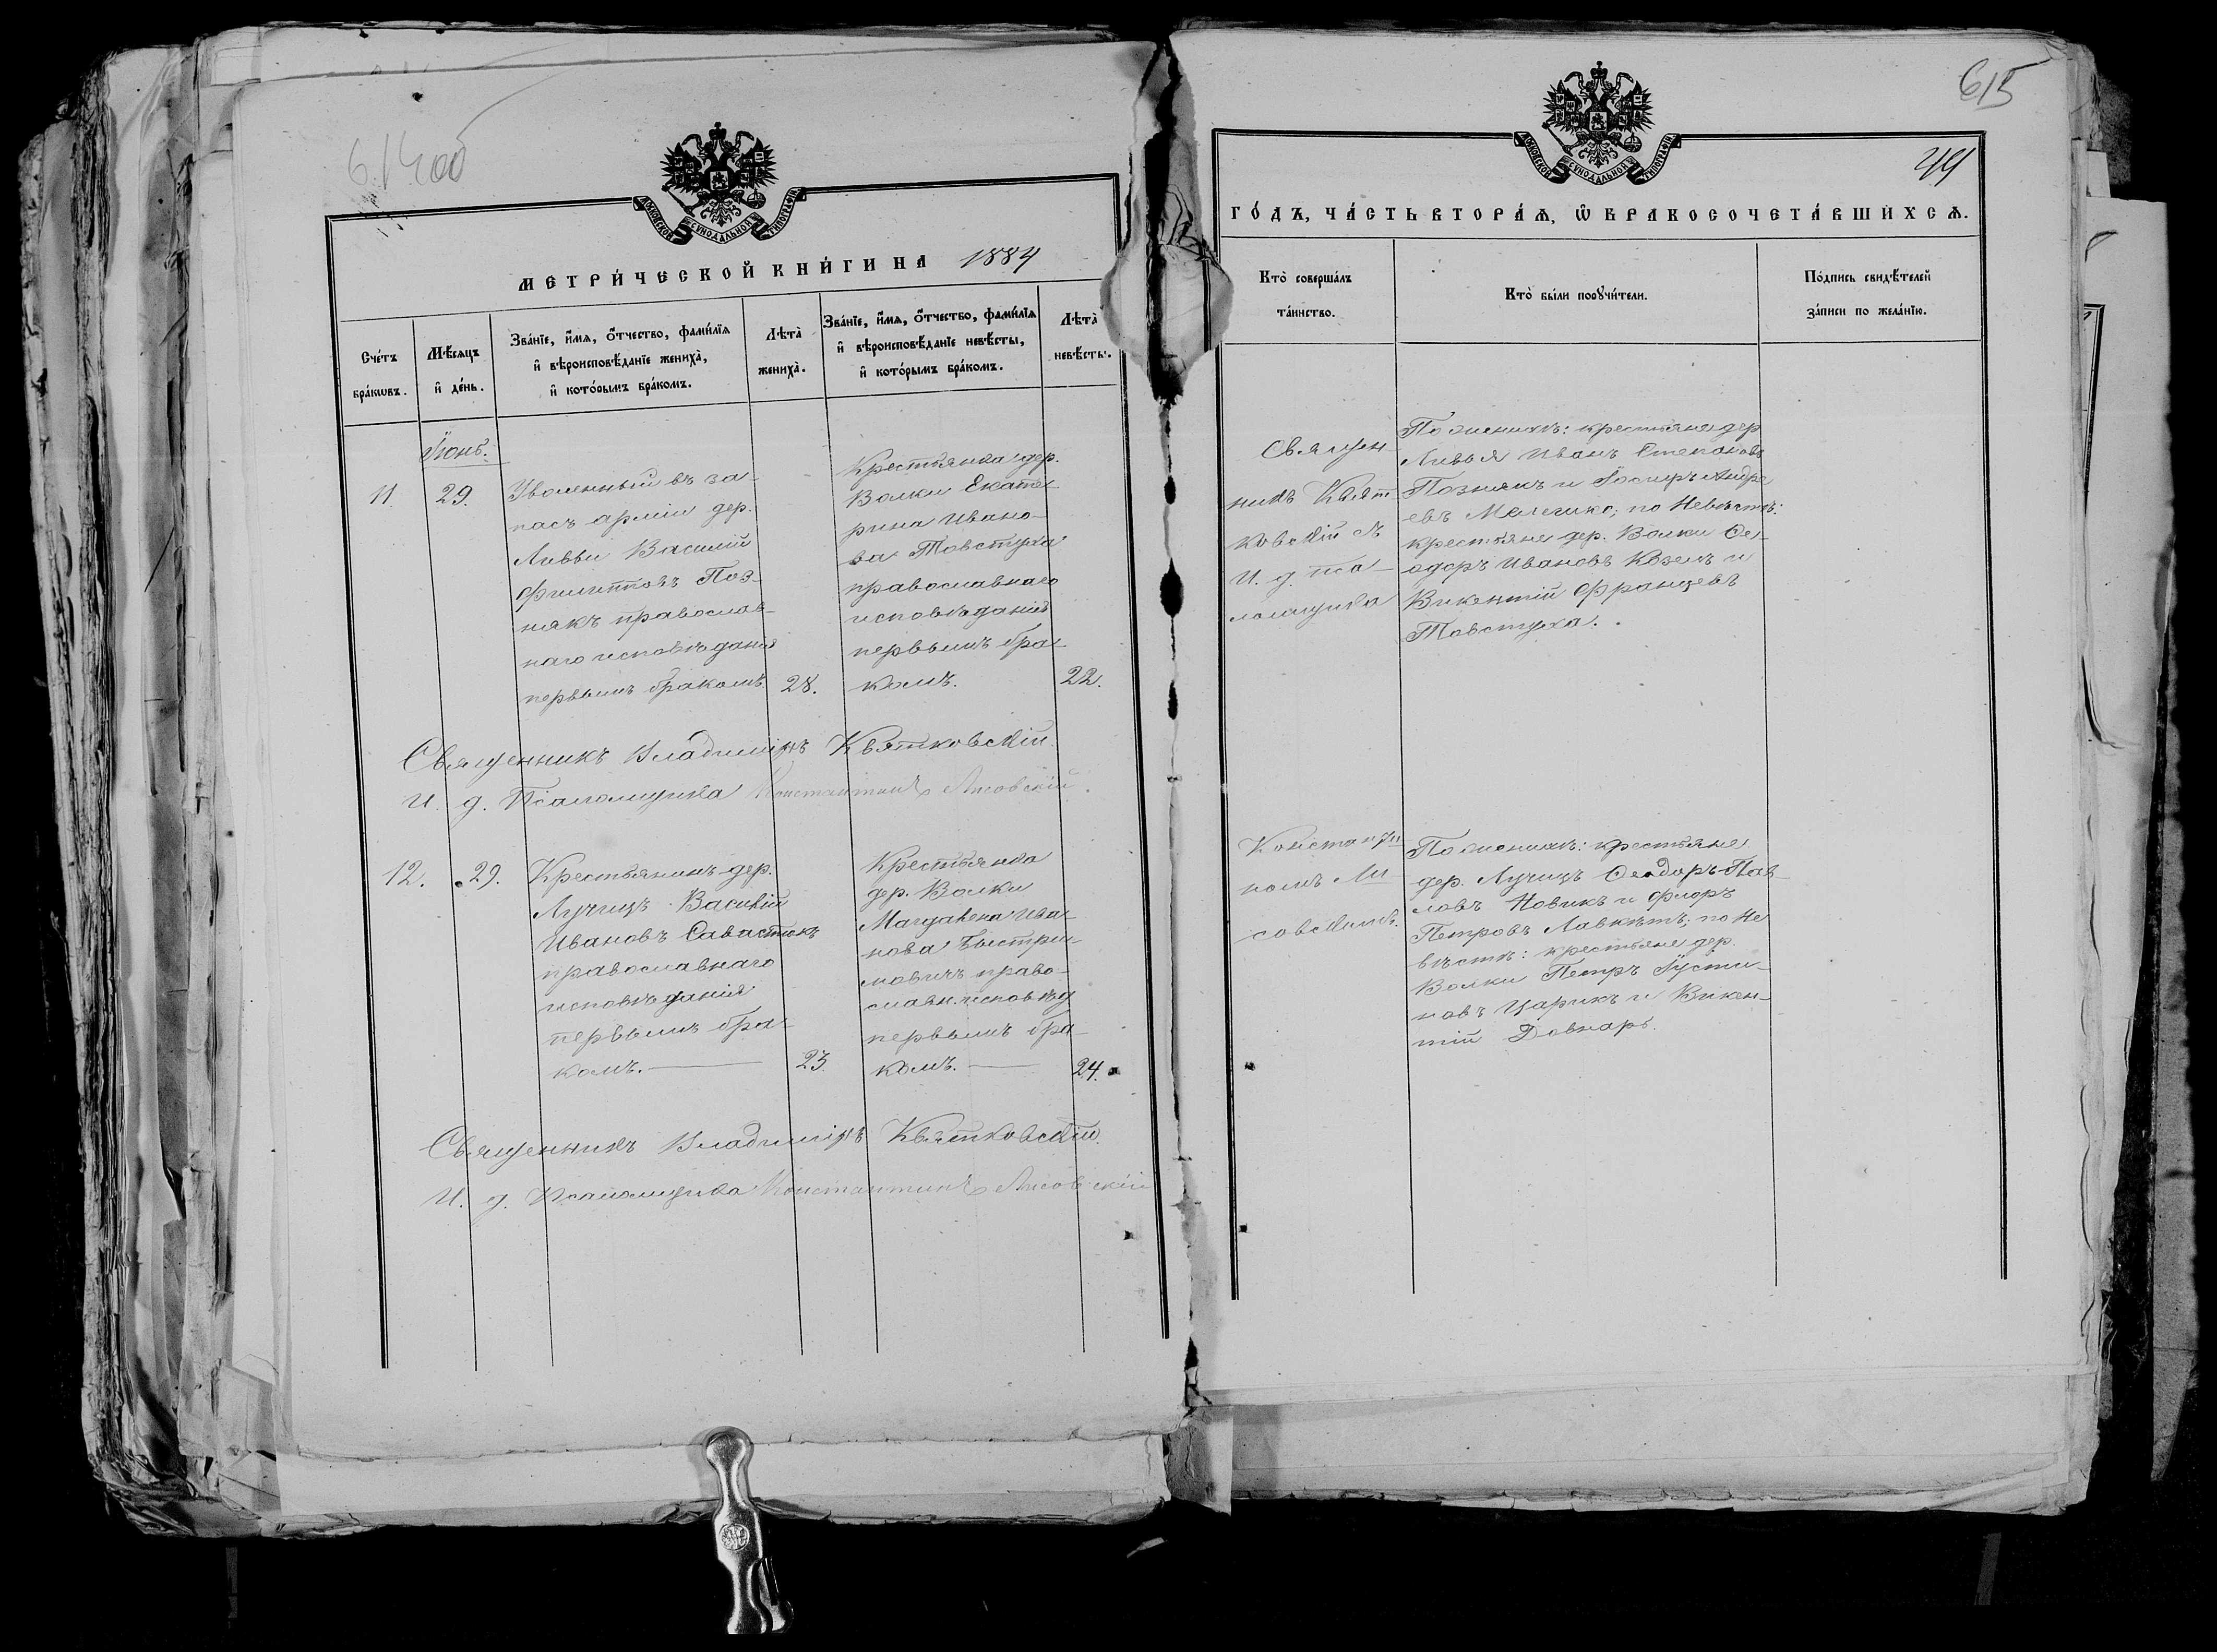 615
МОСКОВСКОЙ СѴНОДАЛЬНОЙ ТИПОГРАФІИ
МЕТРИ́ЧЕСКОЙ КНИ́ГИ НА 1884
Сче́тъ
бра́кѡвъ.
Мѣ́сяцъ
и҆ де́нь.
Зва́нїе, и҆́мя, ѻ҆́тчество, фами́лїя
и҆ вѣроисповѣ́данїе жениха̀,
и҆ кото́рымъ бра́комъ.
Лѣ́та̀
жениха̀.
Зва́нїе, и҆́мя, ѻ҆́тчество, фами́лїя
и҆ вѣроисповѣ́данїе невѣ́сты,
и҆ кото́рымъ бра́комъ.
Лѣ́та̀
невѣ́сты.
Іюнь.
11
29.
Уволенный въ за-
пасъ арміи дер.
Ливьи Василій
Филипповъ Поз-
някъ православ-
наго исповѣданія
первымъ бракомъ
28.
Крестьянка дер.
Волки Екате-
рина Ивано-
ва Товстуха
православнаго
исповѣданія
первымъ бра-
комъ.
22.
Священникъ Владиміръ Квятковскій.
И. д. Псаломщика Константинъ Лисовскій.
12.
29.
Крестьянинъ дер.
Лучицъ Василій
Ивановъ Савастюкъ
православнаго
исповѣданія
первымъ бра-
комъ.
23.
Крестьянка
дер. Волки
Магдалена Ива-
нова Быстри-
мовичъ право-
славн. исповѣд
первымъ бра-
комъ.
24.
Священникъ Владиміръ Квятковскій.
И. д. Псаломщика Константинъ Лисовскій
МОСКОВСКОЙ СѴНОДАЛЬНОЙ ТИПОГРАФІИ
ГО́ДЪ, ЧА́СТЬ ВТОРА́Я, Ѡ҆ БРАКОСОЧЕТА́ВШИХСЯ.
Кто̀ соверша́лъ
та́инство.
Кто̀ бы́ли порꙋчи́тели.
По́дпись свидѣ́телей
за́писи по жела́нїю.
Священ-
никъ Квят
ковскій съ
И. д. пса-
ломщика
По женихѣ: крестьяне дер
Ливья Иванъ Степановъ
Познякъ и Іосифъ Андре
евъ по Невѣстѣ:
крестьяне дер. Волки Ѳе-
одоръ Ивановъ Козелъ и
Викентій Францевъ
Товстуха.
Константи
номъ Ли
совскимъ.
По женихѣ: крестьяне
дер. Лучицъ Ѳеодоръ Пав-
ловъ Новикъ и Флоръ
Петровъ по Не
вѣстѣ: крестьяне дер.
Волки Петръ Іусти-
новъ Царикъ и Викен-
тій Довнаръ.